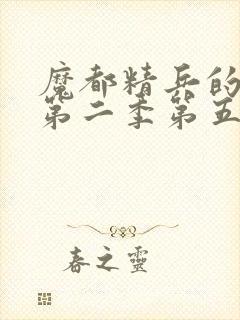 魔都精兵的
第二季第五
春之靈